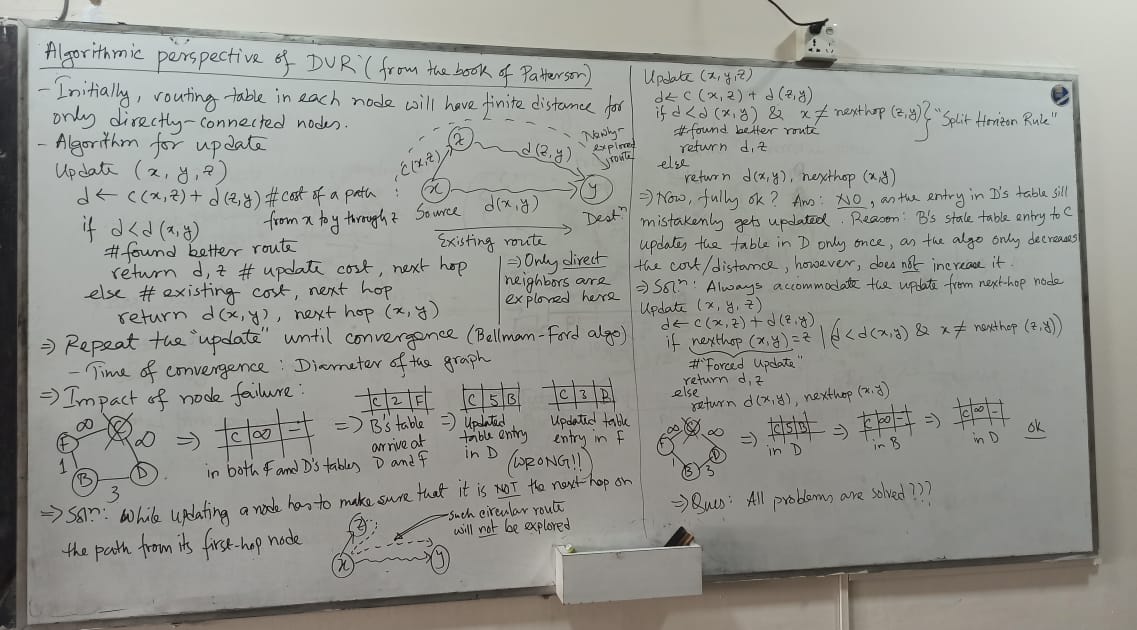 Algorithmic perspective of DVR (from the book of Patterson)
- Initially, routing table in each node will have finite distance for
only directly-connected nodes.
- Algorithm for update
Update (x, y, z)
d ← c(x,z) + d(z,y) # cost of a path
from x to y through z
if d < d(x,y)
# found better route
return d, z # update cost, next hop
else # existing cost, next hop
return d(x,y), next hop (x,y)
c(x,z)
z
d(z,y)
Newly-
explored
route
x
y
Source
d(x,y)
Destⁿ
Existing route
⇒ Only direct
neighbors are
explored here
⇒ Repeat the "update" until convergence (Bellman-Ford algo)
- Time of convergence : Diameter of the graph
⇒ Impact of node failure :
F ∞ C ∞ D 3 B 1
⇒ C | ∞ | -
in both F and D's tables
⇒ C | 2 | F
B's table
arrive at
D and F
⇒ C | 5 | B
Updated
table entry
in D
C | 3 | B
Updated table
entry in F
(WRONG!!)
⇒ Solⁿ: While updating a node has to make sure that it is NOT the next-hop on
the path from its first-hop node
z
x
y
such circular route
will not be explored
Update (x, y, z)
d ← c(x,z) + d(z,y)
if d < d(x,y) & x ≠ nexthop (z,y) } "Split Horizon Rule"
# found better route
return d, z
else
return d(x,y), nexthop (x,y)
⇒ Now, fully ok? Ans: NO, as the entry in D's table sill
mistakenly gets updated. Reason: B's stale table entry to C
updates the table in D only once, as the algo only decreases
the cost/distance, however, does not increase it.
⇒ Solⁿ: Always accommodate the update from next-hop node
Update (x, y, z)
d ← c(x,z) + d(z,y)
if nexthop (x,y) = z | (d < d(x,y) & x ≠ nexthop (z,y))
# "Forced Update"
return d, z
else
return d(x,y), nexthop (x,y)
F ∞ C ∞ D 3 B 1
⇒ C | 5 | B
in D
⇒ C | ∞ | -
in B
⇒ C | ∞ | -
in D
ok
⇒ Ques: All problems are solved???